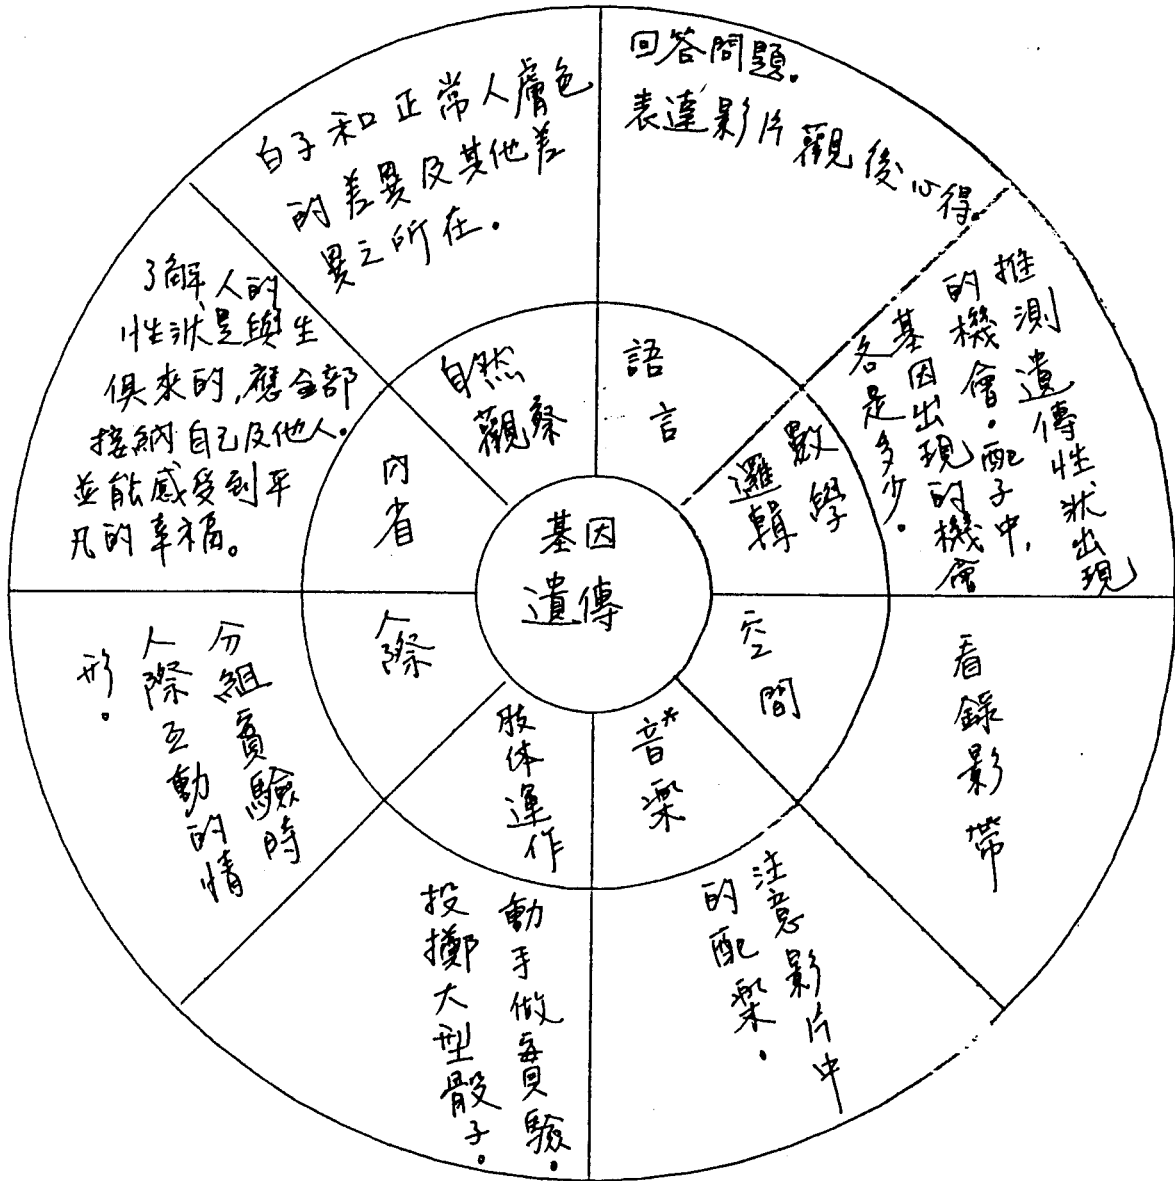 基因
遺傳
語
言
回答問題。
表達影片觀後心得。
數學
邏輯
推測遺傳性狀出現
的機會。配子中,
基因出現的機會
各是多少。
空
間
看錄影帶
音*樂
注意影片中
的配樂。
肢体運作
動手做實驗。
投擲大型骰子。
人際
分組實驗時
人際互動的情
形。
內
省
了解人的
性狀是與生
俱來的,應全部
接納自己及他人。
並能感受到平
凡的幸福。
自然
觀察
白子和正常人膚色
的差異及其他差
異之所在。